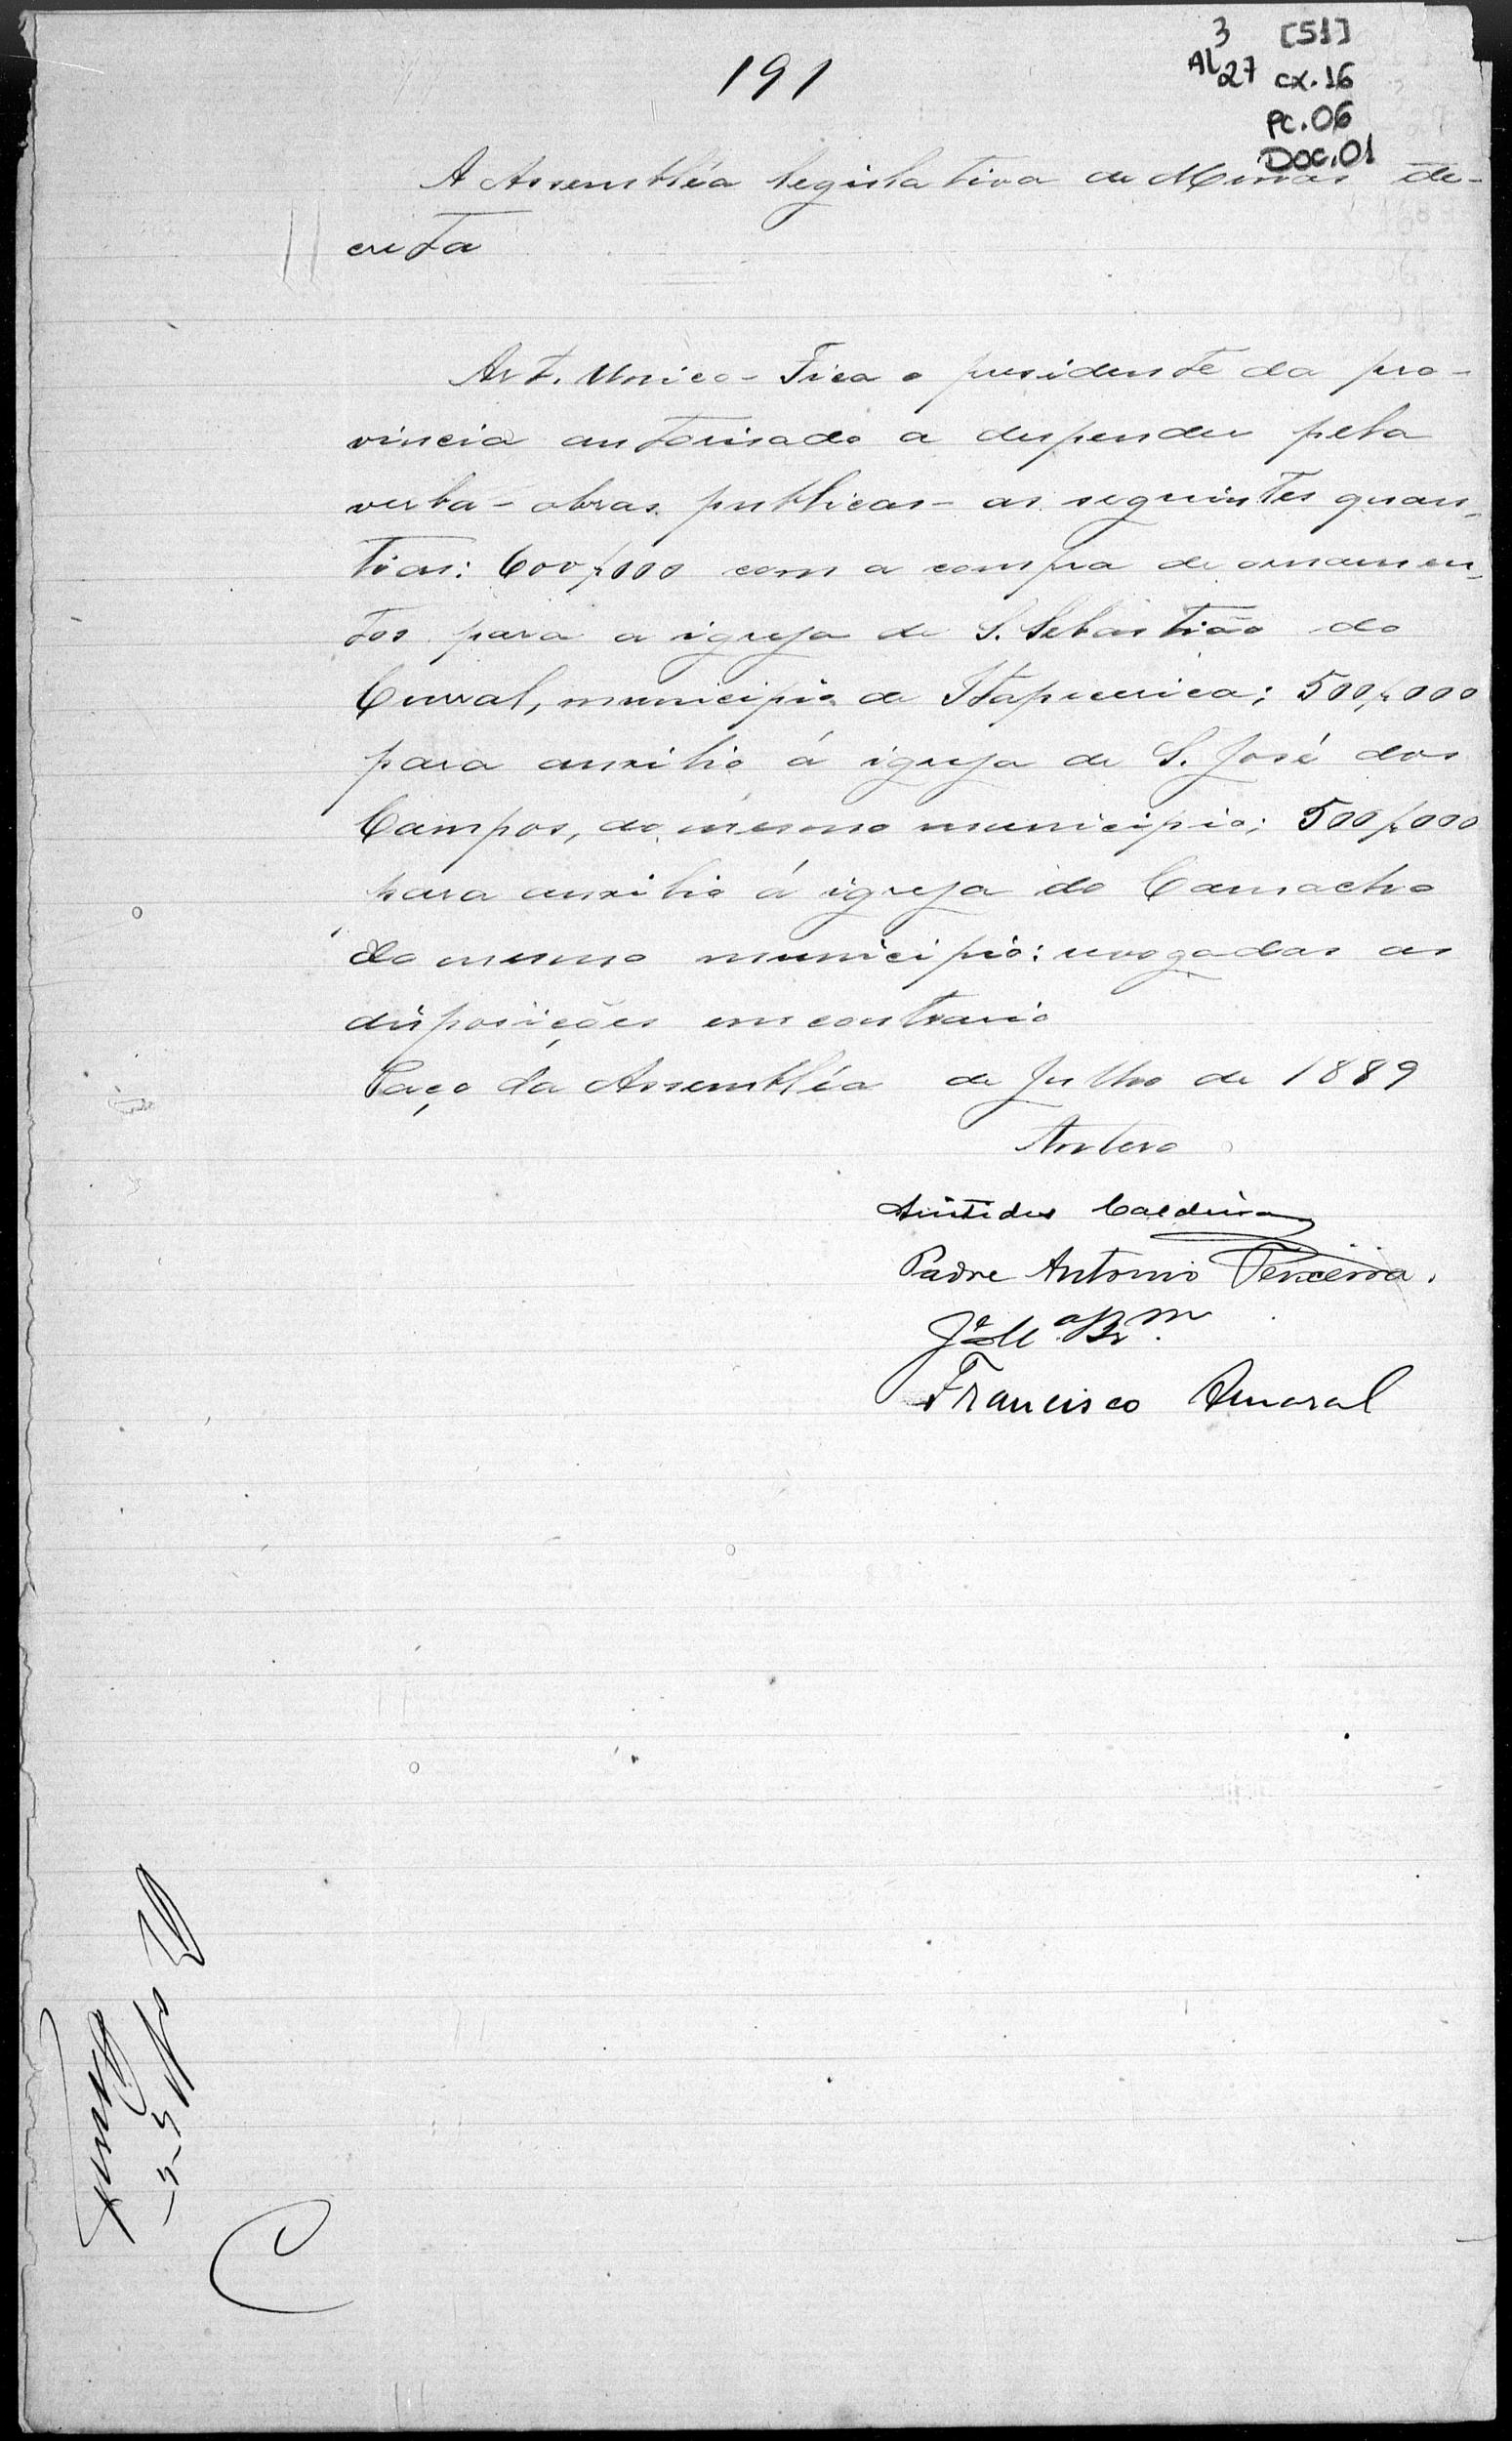 3 [51]
AL 27 cx. 16
PC. 06
DOC. 01
191
A Assembléa Legislativa de Minas de-
creta
Art. Unico - Fica o presidente da pro-
vincia autorisado a despender pela
verba - obras publicas - as seguintes quan-
tias: 600$000 com a compra de ornamen-
tos para a igreja de S. Sebastião do
Curral, municipio de Itapecerica; 500$000
para auxilio á igreja de S. José dos
Campos, do mesmo municipio; 500$000
para auxilio á igreja do Camacho
do mesmo municipio: revogadas as
disposições em contrario
Paço da Assembléa de Julho de 1889
Antero
Aristides Caldeira
Padre Antonio Teixeira.
Francisco Amaral